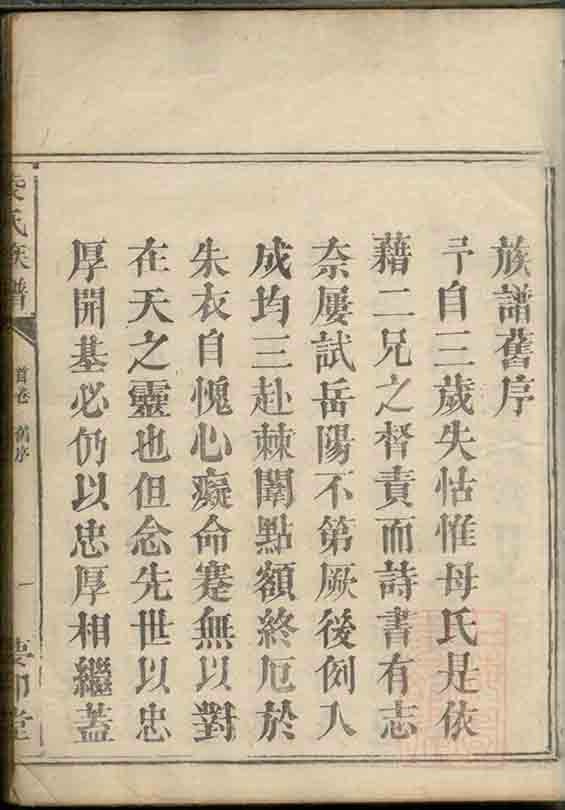 族譜舊序
予自三歲失怙惟母氏是依
藉二兄之督責而詩書有志
奈屢試岳陽不第厥後例入
成均三赴棘闈點額終厄於
朱衣自愧心癡命蹇無以對
在天之靈也但念先世以忠
厚開基必仍以忠厚相繼蓋
氏族譜
首卷 舊序
一
堂